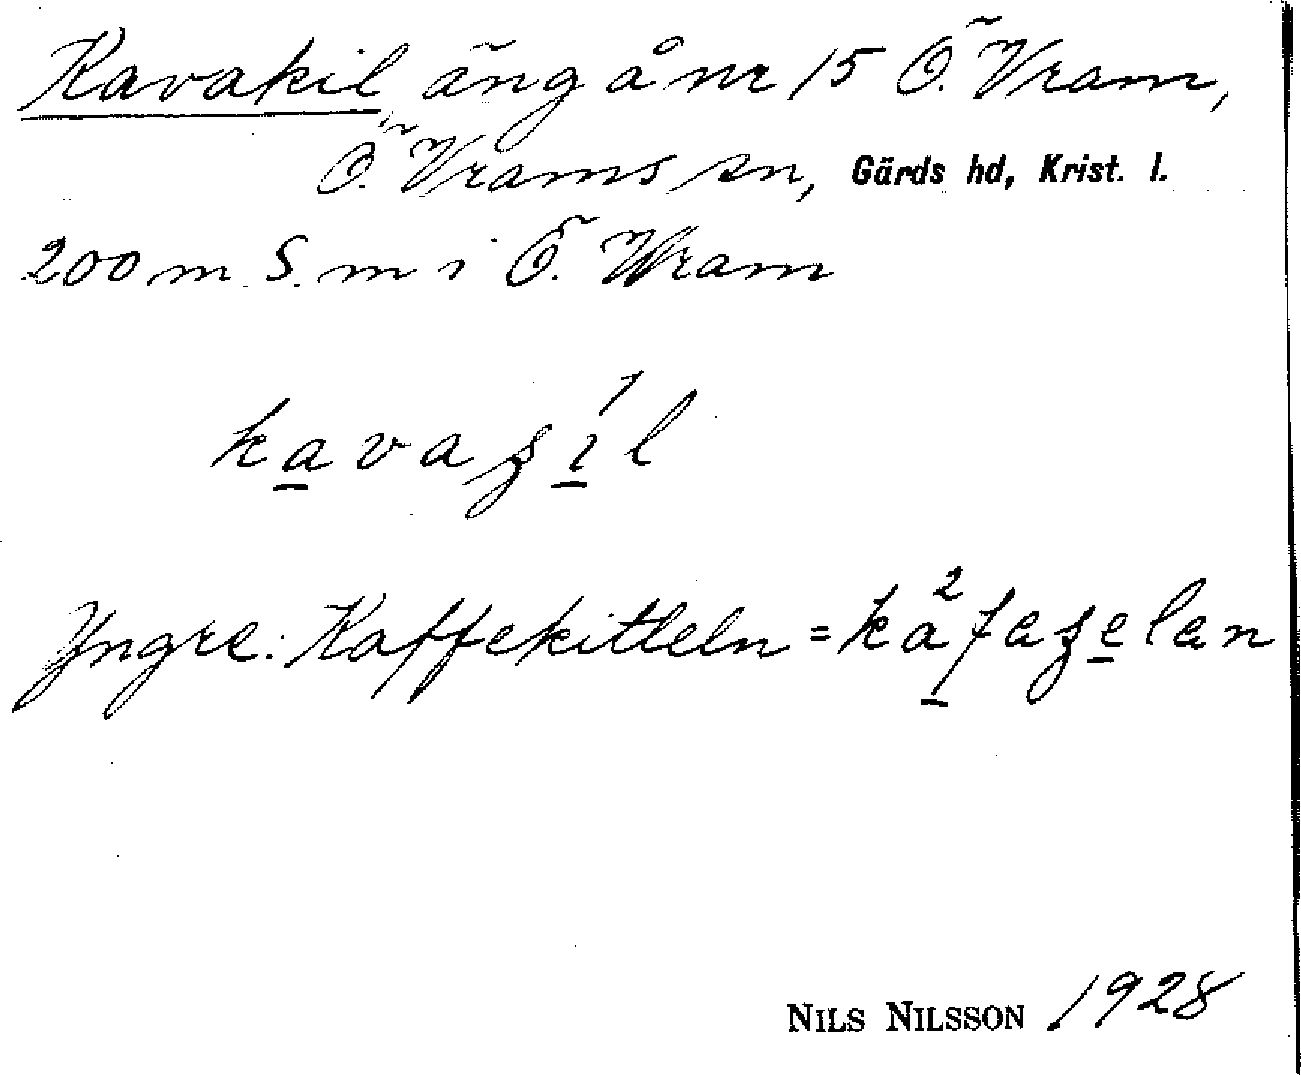 Kavakil, äng å nr 15 Ö. Vram,
Ö. Vrams sn, Gärds hd, Krist. l.
200 m S. m i Ö. Wram
kavaʂíl
Yngre: Kaffekitteln = ka²faʂelan
NILS NILSSON 1928